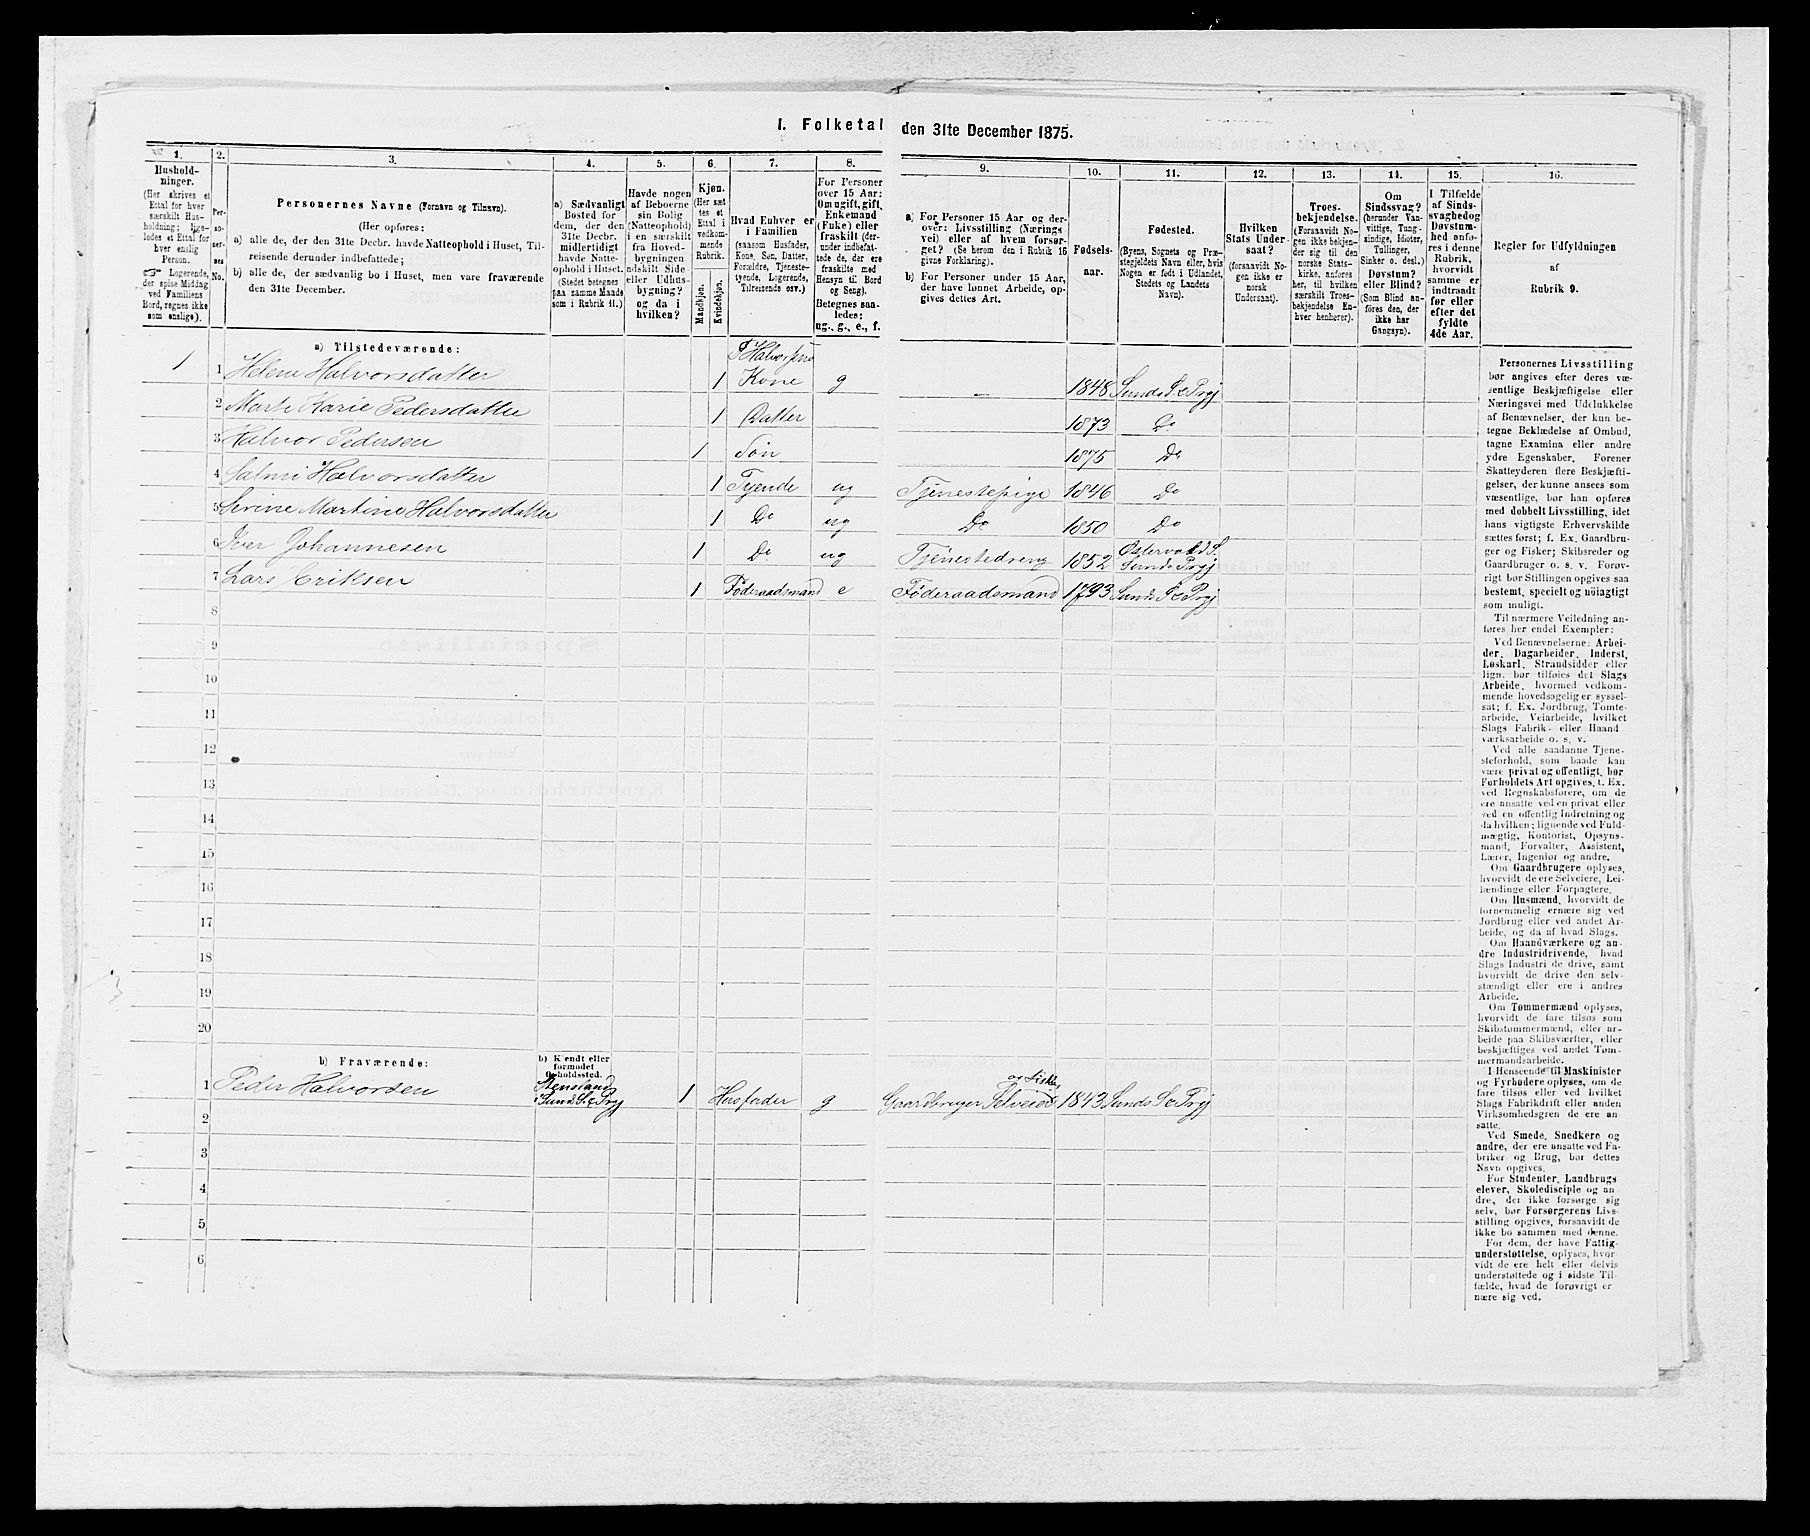 1. Folketal den 31te December 1875.
1.
Hushold-
ninger.
(Her skrives et
Ettal for hver
særskilt Hus-
holdning; lige-
ledes et Ettal for
hver enslig
Person.
☞ Logerende,
der spise Middag
ved Familiens
Bord, regnes ikke
som enslige).
2.
Per-
so-
ner-
nes
No.
3.
Personernes Navne (Fornavn og Tilnavn).
(Her opføres:
a) alle de, der den 31te Decbr. havde Natteophold i Huset, Til-
reisende derunder indbefattede;
b) alle de, der sædvanlig bo i Huset, men vare fraværende
den 31te December.
4.
a) Sædvanligt
Bosted for
dem, der den
31te Decbr.
midlertidigt
havde Natte-
ophold i Huset.
(Stedet betegnes
paa samme Maade
som i Rubrik 11.)
5.
Havde nogen
af Beboerne
sin Bolig
(Natteophold)
i en særskilt
fra Hoved-
bygningen
adskilt Side-
eller Udhus-
bygning?
og da i
hvilken?
6.
Kjøn.
(Her sæt-
tes et
Ettal i
vedkom-
mende
Rubrik.
Mandkjøn.
Kvindekjøn.
7.
Hvad Enhver er
i Familien
(saasom Husfader,
Kone, Søn, Datter,
Forældre, Tjeneste-
tyende, Logerende,
Tilreisende osv.)
8.
For Personer
over 15 Aar:
Om ugift, gift,
Enkemand
(Enke) eller
fraskilt (der-
under indbefat-
tede de, der ere
fraskilte med
Hensyn til Bord
og Seng).
Betegnes saa-
ledes:
ug., g., e., f.
9.
a) For Personer 15 Aar og der-
over: Livsstilling (Nærings
vei) eller af hvem forsør-
get? (Se herom den i Rubrik 16
givne Forklaring).
b) For Personer under 15 Aar,
der have lønnet Arbeide, op-
gives dettes Art.
10.
Fødsels-
aar.
11.
Fødested.
(Byens, Sognets og Præ-
stegjeldets Navn eller, hvis
Nogen er født i Udlandet,
Stedets og Landets
Navn).
12.
Hvilken
Stats Under-
saat?
(forsaavidt No-
gen ikke er
norsk
Undersaat).
13.
Troes-
bekjendelse.
(Forsaavidt No-
gen ikke bekjen-
der sig til den
norske Stats-
kirke, anføres
her, til hvilken
særskilt Troes-
bekjendelse En-
hver henhører).
14.
Om
Sindssvag?
(herunder Van-
vittige, Tung-
sindige, Idioter,
Tullinger,
Sinker o. desl.)
Døvstum?
eller Blind?
(Som Blind an-
føres den, der
ikke har
Gangsyn).
15.
I Tilfælde
af Sinds-
svaghed og
Døvstum-
hed anfø-
res i denne
Rubrik,
hvorvidt
samme er
indtraadt
før eller
efter det
fyldte
4de Aar.
16.
Regler for Udfyldningen
af
Rubrik 9.
a) Tilstedeværende:
1 1 Helene Halvorsdatter 1 P Halvorsens Kone g — 1848 Sunds S & Prgj
2 Marte Karie Pedersdatter 1 Datter 1873 Do
3 Halvor Pedersen 1 Søn 1875 Do
4 Malene Halvorsdatter 1 Tyende ug Tjenestepige 1846 Do
5 Serine Martine Halvorsdatter 1 Do ug Do 1850 Do
6 Iver Johannesen 1 Do ug Tjenestedreng 1852 Ostervold S. Sunds Prgj
7 Lars Eriksen 1 Føderaadsmand e Føderaadsmand 1793 Sunds S & Prgj
8
9
10
11
12
13
14
15
16
17
18
19
20
b) Fraværende:
b) Kjendt eller
formodet
Opholdssted.
1 Peder Halvorsen Stensland Sund S. & Prgj 1 Husfader g Gaardbruger Selveier og Fisker 1843 Sunds S & Prgj
2
3
4
5
6
Personernes Livsstilling
bør angives efter deres væ-
sentlige Beskjæftigelse eller
Næringsvei med Udelukkelse
af Benævnelser, der kun be-
tegne Beklædelse af Ombud,
tagne Examina eller andre
ydre Egenskaber. Forener
Skatteyderen flere Beskjæfti-
gelser, der kunne ansees som
væsentlige, bør han opføres
med dobbelt Livsstilling, idet
hans vigtigste Erhvervskilde
sættes først; f. Ex. Gaardbru-
ger og Fisker; Skibsreder og
Gaardbruger o. s. v. Forøv-
rigt bør Stillingen opgives saa
bestemt, specielt og nøiagtigt
som muligt.
Til nærmere Veiledning an-
føres her endel Exempler:
Ved Benævnelserne: Arbei-
der, Dagarbeider, Inderst,
Løskarl, Strandsidder eller
lign. bør tilføies det Slags
Arbeide, hvormed vedkom-
mende hovedsagelig er syssel-
sat; f. Ex. Jordbrug, Tomte-
arbeide, Veiarbeide, hvilket
Slags Fabrik- eller Haand
værksarbeide o. s. v.
Ved alle saadanne Tjene-
steforhold, som baade kan
være privat og offentligt, bør
Forholdets Art opgives, t. Ex.
ved Regnskabsførere, om de
ere ansatte ved en privat eller
ved en offentlig Indretning og
da hvilken; lignende ved Fuld-
mægtig, Kontorist, Opsyns-
mand, Forvalter, Assistent,
Lærer, Ingeniør og andre.
Om Gaardbrugere oplyses,
hvorvidt de ere Selveiere, Lei-
lændinge eller Forpagtere.
Om Husmænd, hvorvidt de
fornemmelig ernære sig ved
Jordbrug eller ved andet Ar-
beide, og da af hvad Slags.
Om Haandværkere og an-
dre Industridrivende, hvad
Slags Industri de drive, samt
hvorvidt de drive den selv-
stændigt eller ere i andres
Arbeide.
Om Tømmermænd oplyses,
hvorvidt de fare tilsøs som
Skibstømmermænd, eller ar-
beide paa Skibsværfter, eller
beskjæftiges ved andet Tøm-
mermandsarbeide.
I Henseende til Maskinister
og Fyrbødere oplyses, om de
fare tilsøs eller ved hvilket
Slags Fabrikdrift eller anden
Virksomhedsgren de ere an-
satte.
Ved Smede, Snedkere og
andre, der ere ansatte ved Fa-
briker og Brug, bør dettes
Navn opgives.
For Studenter, Landbrugs
elever, Skoledisciple og an-
dre, der ikke forsørge sig
selv, bør Forsørgerens Livs-
stilling opgives, forsaavidt de
ikke bo sammen med denne.
For dem, der have Fattig-
understøttelse, oplyses, hvor-
vidt de ere helt eller delvis
understøttede og i sidste Til-
fælde, hvad de forøvrigt er
nære sig ved.